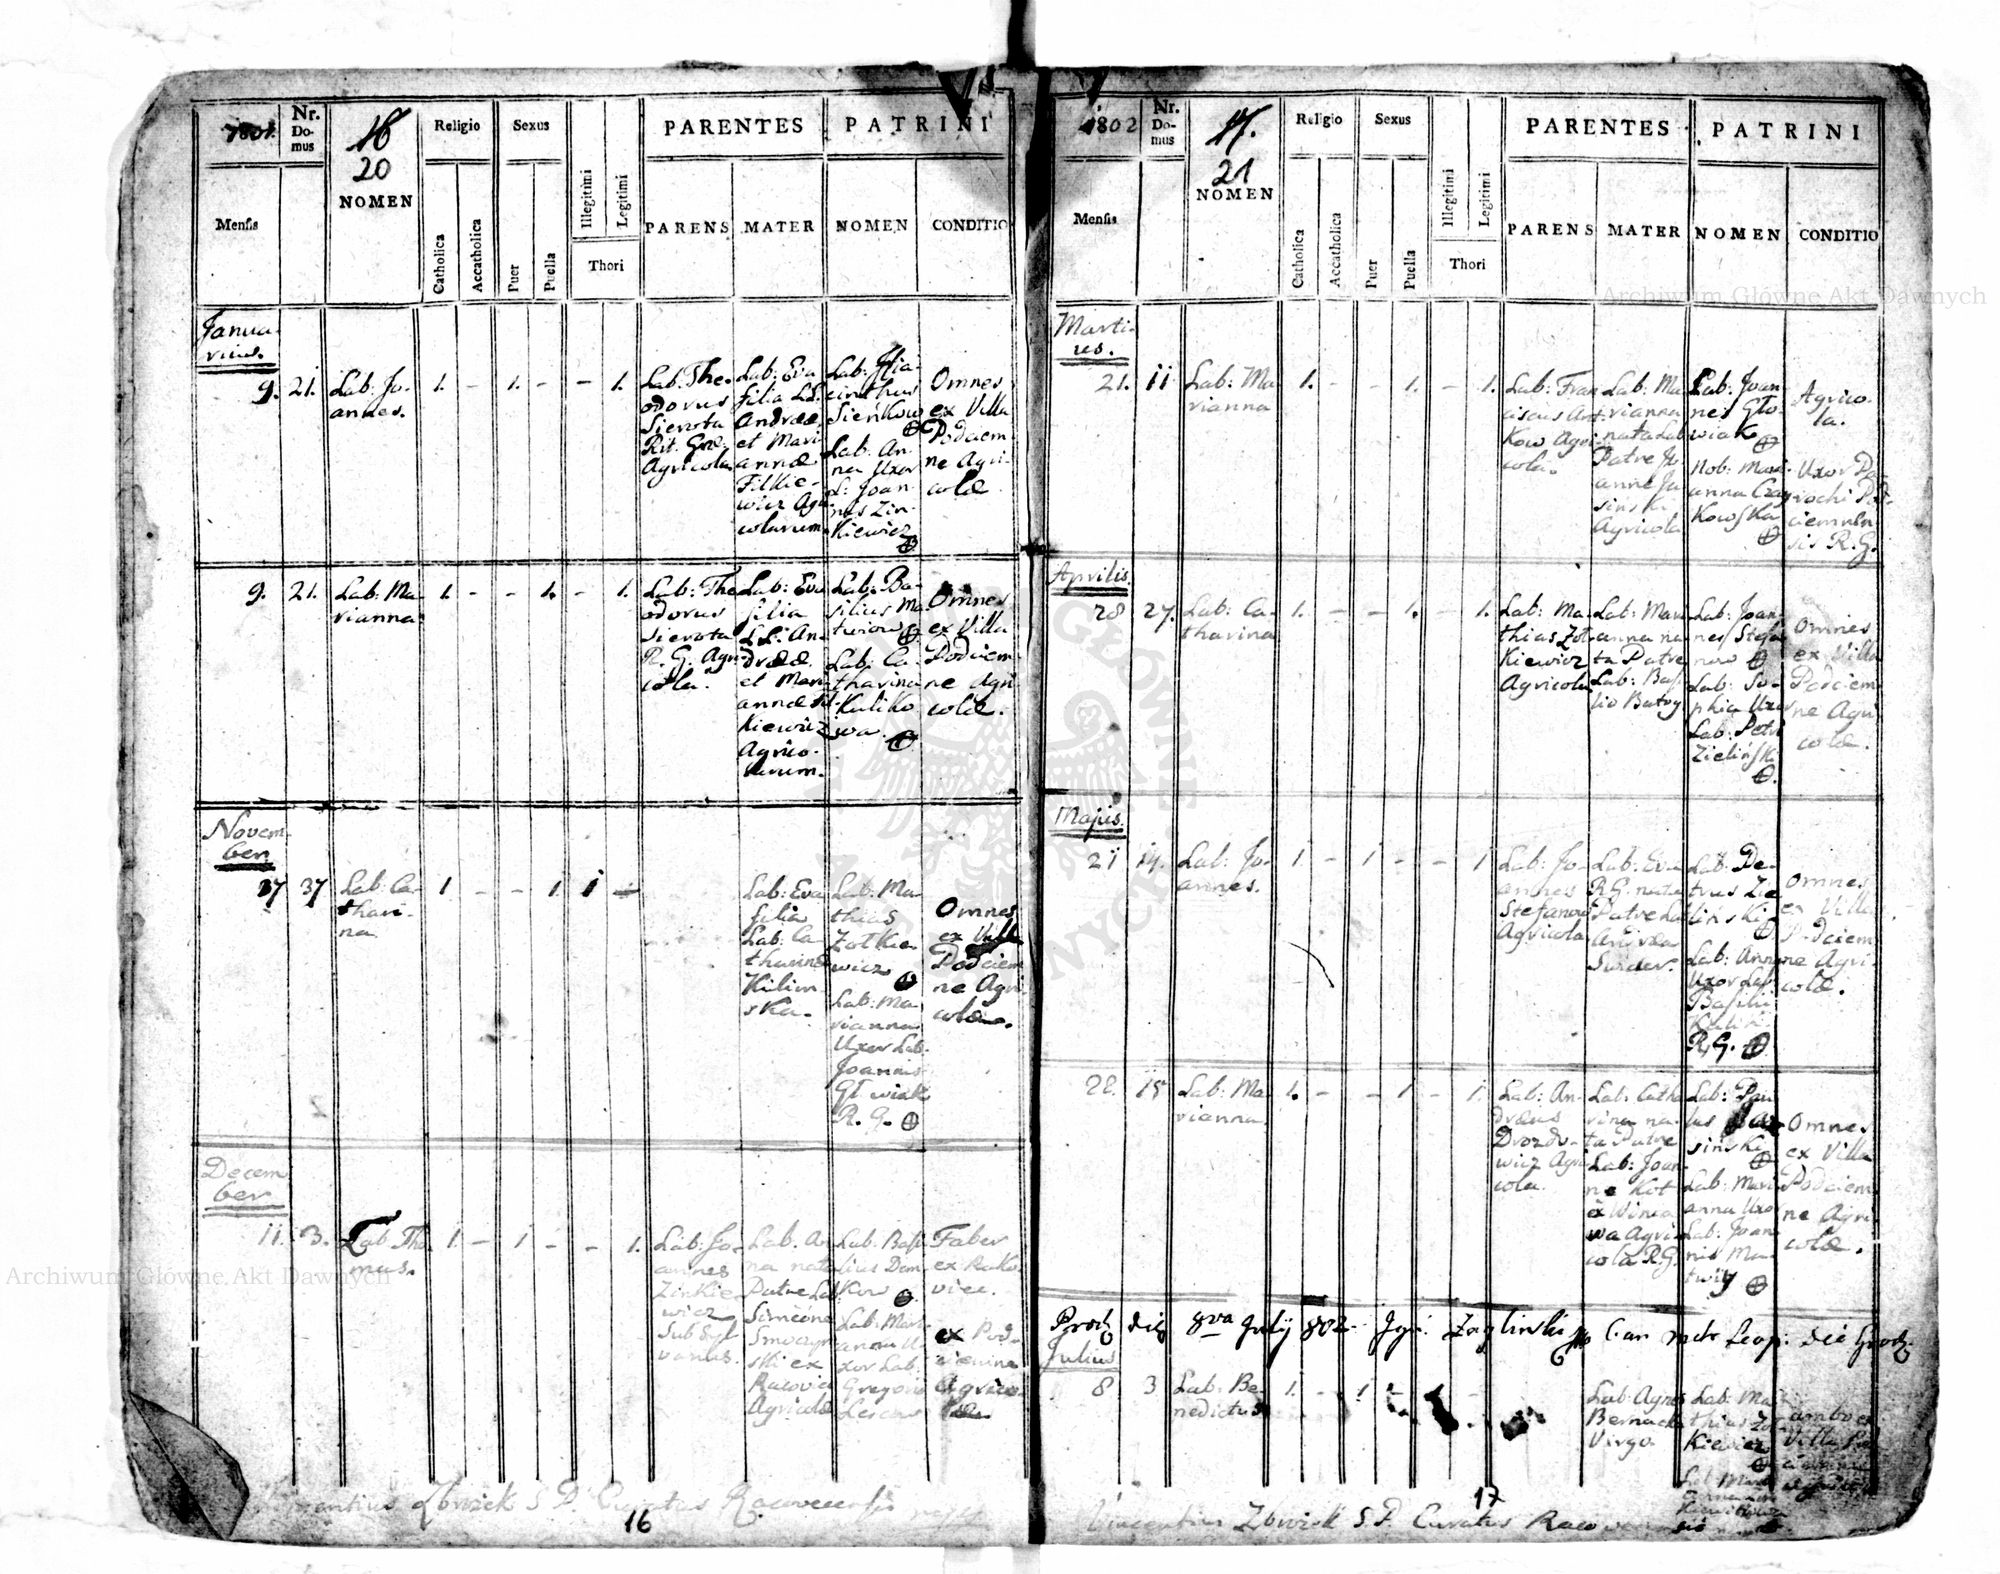 1801.
Nr. Domus
18
20
NOMEN
Religio
Sexus
PARENTES
PATRINI
Mensis
Catholica
Accatholica
Puer
Puella
Illegitimi
Legitimi
Thori
PARENS
MATER
NOMEN
CONDITIO
Janua-
rius.
9. 21. Lab: Jo-
annes.
1. - 1. - - 1.
Lab: The-
odorus
Sierota
Rit. Græ.
Agricola
Lab: Eva
filia LL.
Andreæ
et Mari-
annæ
Filkie-
wicz Agri
colarum
Lab: Hia-
cinthus
Sieńkow
Lab: An-
na Uxor
L: Joan-
nis Zin-
kiewicz
Omnes
ex Villa
Podciem-
ne Agri-
colæ
9. 21. Lab: Ma-
rianna
1. - - 1. - 1.
Lab: The
odorus
Sierota
R. G. Agri-
cola.
Lab: Eva
filia
LL: An-
dreæ
et Mari
annæ Fil-
kiewicz
Agrico-
larum.
Lab: Ba-
silius Ma
twiow
Lab: Ca-
tharina
Kuliko
wa.
Omnes
ex Villa
Podciem
ne Agri
colæ.
Novem-
ber
27 37 Lab: Ca-
thari-
na
1 - - 1 1 -
Lab: Eva
filia
Lab: Ca-
tharinæ
Kilim-
ska.
Lab: Ma-
thias
Zotkie
wicz
Lab: Ma-
rianna
Uxor Lab.
Joannis
Gł wiak
R. G.
Omnes
ex Villa
Podciem
ne Agri
colæ.
Decem
ber
11. 3. Lab Tho
mas.
1. - 1 - - 1.
Lab: Jo-
annes
Zinkie
wicz
Sub Syl
vanus.
Lab. An
na nata
Patre Lab
Simeone
Smoczyn
ski ex
Racovie
Agricola
Lab: Basi
lius Dem
kow
Lab: Mari
anna U-
xor Lab.
Gregorii
Faber
ex Rako
viec.
ex Pod-
ciemne
Agrico-
læ
Vincentius Zbwiek S. P. Curatus Racoviecensis
16
1802
Nr. Domus
17.
21
NOMEN
Religio
Sexus
PARENTES
PATRINI
Mensis
Catholica
Accatholica
Puer
Puella
Illegitimi
Legitimi
Thori
PARENS
MATER
NOMEN
CONDITIO
Marti-
us.
21. 11 Lab: Ma
rianna
1. - - 1. - 1.
Lab: Fran
ciscus
kow Agri-
cola.
Lab: Ma
rianna
nata Lab
Patre Jo
anne Ja
sinski
Agricola
Lab: Joan
nes Gło-
wiak
Nob: Mari-
anna Czay
kowska
Agrico-
la.
Uxor Pa-
rochi Pod-
ciemnen
sis R. G.
Aprilis.
28 27. Lab: Ca-
tharina
1. - - 1. - 1.
Lab: Ma-
thias Zot
kiewicz
Agricola
Lab: Mari
anna na-
ta Patre
Lab: Basi
lio Batog
Lab: Joan-
nes Stefa
now
Lab: So-
phia Uxor
Lab: Petri
Zielińsk.
Omnes
ex Villa
Podciem
ne Agri
colæ.
Majus.
21 14. Lab: Jo-
annes.
1 - 1 - - 1
Lab: Jo-
annes
Stefanow
Agricola
Lab: Eva
R. G. nata
Patre Lab
Andrea
Swider.
Lab: Pe-
trus Zie
linski
Lab: Anna
Uxor Lab
Basilii
Kulik
R. G.
Omnes
ex Villa
Podciem
ne Agri-
colæ.
22. 15 Lab: Ma
rianna.
1. - - 1 - 1.
Lab: An-
dreas
Drozdo-
wicz Agri
cola.
Lab: Catha
rina na-
ta Patre
Lab: Joan-
ne Kot
ex Winia
wa Agri-
cola R. G.
Lab: Pau
lus
sinski
Lab: Mari
anna Uxo
Lab: Joan
nis Ma-
twiy
Omnes
ex Villa
Podciem
ne Agri
colæ.
Prod. die 8va July 802
Julius
8 3 Lab: Be-
nedictus
1. - 1
Lab: Agnes
Bernacka
Virgo
Lab: Ma
thias Zot
kiewicz
ambo ex
Villa Pod
Vincentius Zbwiek S. P. Curatus
17
Archiwum Główne Akt Dawnych
Archiwum Główne Akt Dawnych